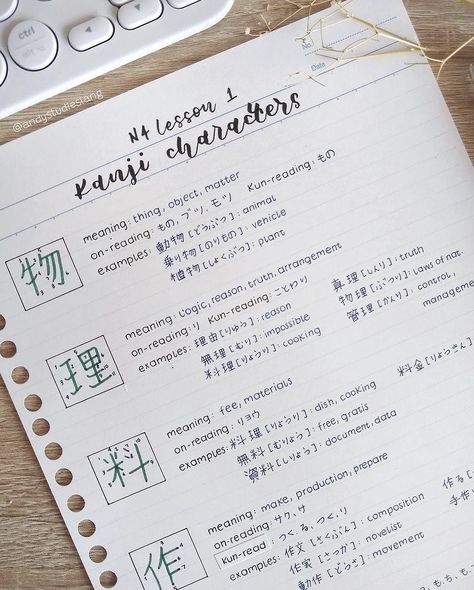 ctrl
alt
@andystudieslang
No.
Date
N4 lesson 1
Kanji characters
物
meaning: thing, object, matter
on-reading: もの, ブツ, モツ Kun-reading: もの
examples: 動物 [どうぶつ]: animal
乗り物 [のりもの]: vehicle
植物 [しょくぶつ]: plant
理
meaning: logic, reason, truth, arrangement
on-reading: リ Kun-reading: ことわり
examples: 理由 [りゆう]: reason
無理 [むり]: impossible
料理 [りょうり]: cooking
真理 [しんり]: truth
物理 [ぶつり]: laws of nat
管理 [かんり]: control,
manageme
料
meaning: fee, materials
on-reading: リョウ
examples: 料理 [りょうり]: dish, cooking
無料 [むりょう]: free, gratis
資料 [しりょう]: document, data
料金 [りょうきん]
作
meaning: make, production, prepare
on-reading: サク, サ
Kun-read: つく.る, つく.り
examples: 作文 [さくぶん]: composition
作家 [さっか]: novelist
動作 [どうさ]: movement
作る
手作